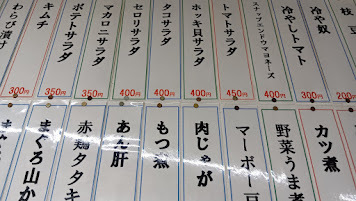 枝豆
200円
冷や奴
300円
冷やしトマト
300円
スナップエンドウマヨネーズ
400円
トマトサラダ
450円
ホッキ貝サラダ
400円
タコサラダ
400円
セロリサラダ
400円
マカロニサラダ
350円
ポテトサラダ
350円
キムチ
350円
わらび漬け
300円
カツ煮
野菜うま煮
マーボー豆
肉じゃが
もつ煮
あん肝
赤鶏タタキ
まぐろ山か